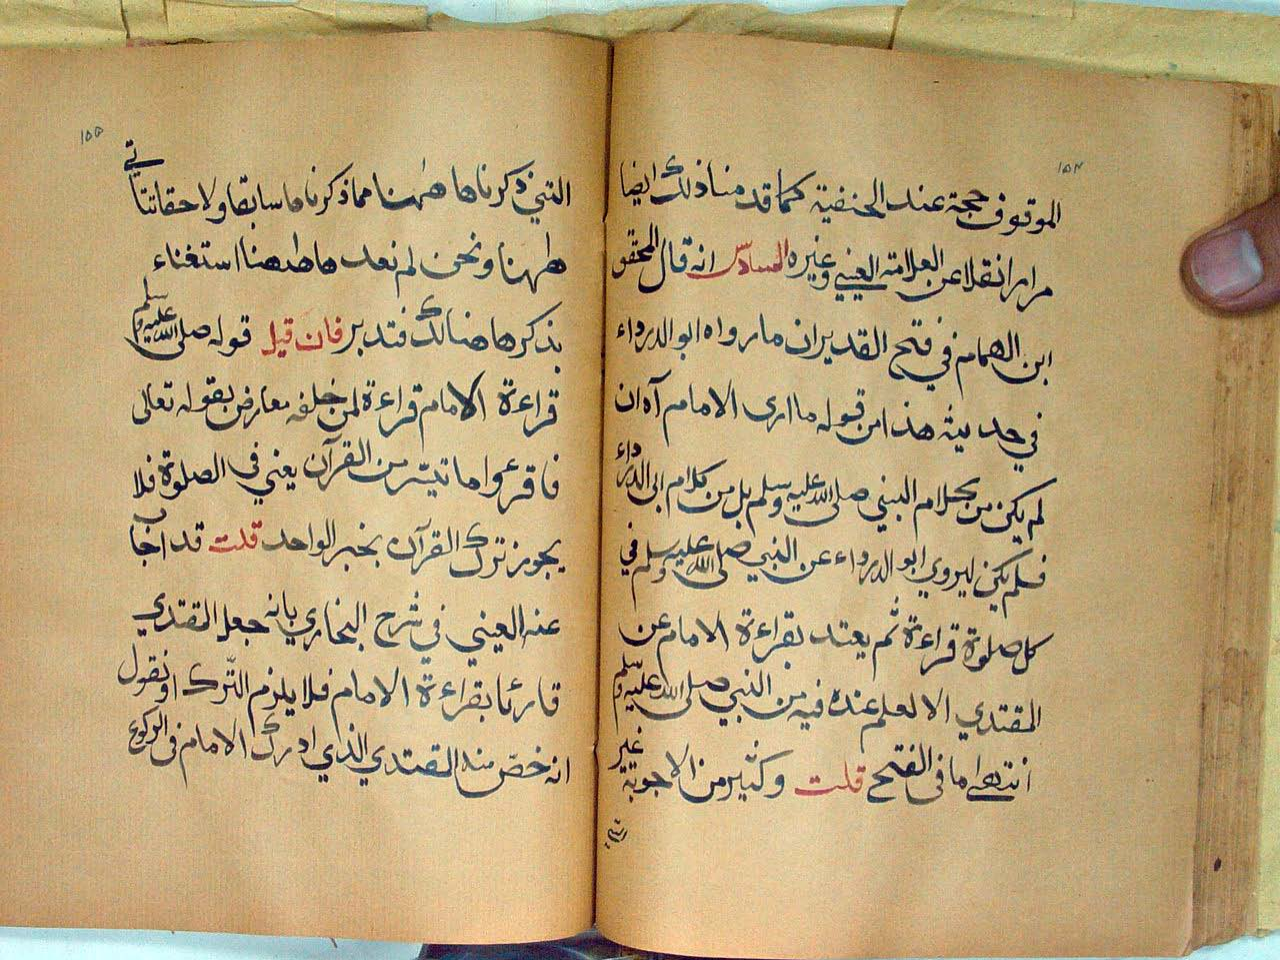 ١٥٤
الموقوف حجة عند الحنفية كما قدمنا ذلك ايضا
مرارا نقلا عن العلامة العيني وغيره السادس انه قال المحقق
ابن الهمام في فتح القدير ان ما رواه ابو الدرداء
في حديثه هذا من قوله ما ارى الامام آه ان
لم يكن من كلام النبي صلى الله عليه وسلم بل من كلام ابي الدرداء
فلم يكن ليروي ابو الدرداء عن النبي صلى الله عليه وسلم في
كل صلوة قراءة ثم يعتد بقراءة الامام عن
المقتدي الا لعلم عنده فيه من النبي صلى الله عليه وسلم
انتهى ما في الفتح قلت وكثير من الاجوبة غير
التي
١٥٥
التي ذكرناها ههنا مما ذكرناها سابقا ولاحقا تتاتي
ههنا ونحن لم نعدها ههنا استغناء
بذكرها هنالك فتدبر فان قيل قوله صلى الله عليه وسلم
قراءة الامام قراءة لمن خلفه معارض بقوله تعالى
فاقرءوا ما تيسّر من القرآن يعني في الصلوة فلا
يجوز ترك القرآن بخبر الواحد قلت قد اجاب
عنه العيني في شرح البخاري بانه جعل المقتدي
قارئا بقراءة الامام فلا يلزم التّرك او نقول
انه خصّ منه المقتدي الذي ادرك الامام في الركوع